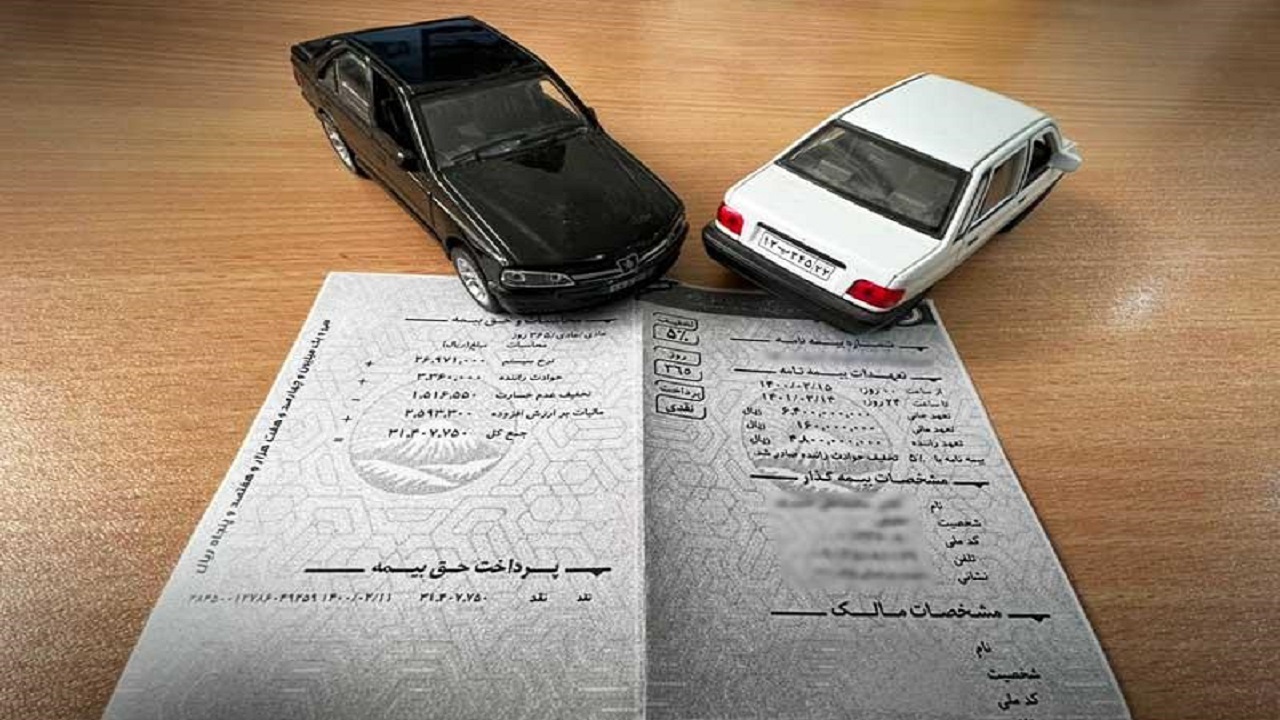 ۱۲ب۳۴۵ ۲۲
تخفیف
۵٪
روز
۳۶۵
پرداخت
نقدی
شماره بیمه نامه
تعهدات بیمه نامه
از ساعت ۰۰ روز: ۱۴۰۰/۰۲/۱۵
تا ساعت ۲۴ روز: ۱۴۰۱/۰۲/۱۴
تعهد جانی ۶،۴۰۰،۰۰۰،۰۰۰ ریال
تعهد مالی ۱۶۰،۰۰۰،۰۰۰ ریال
تعهد راننده ۴،۸۰۰،۰۰۰،۰۰۰ ریال
بیمه نامه با ۵٪ تخفیف حوادث راننده صادر شد.
مشخصات بیمه گذار
نام
شخصیت
کد ملی
تلفن
نشانی
مشخصات مالک
نام
شخصیت
کد ملی
و حق بیمه
عادی /عادی/۳۶۵ روز
محاسبات مبلغ(ریال)
نرخ سیستم ۲۶،۹۷۱،۰۰۰ +
حوادث راننده ۳،۳۶۰،۰۰۰ +
تخفیف عدم خسارت ۱،۵۱۶،۵۵۰ -
مالیات بر ارزش افزوده ۲،۵۹۳،۳۰۰ +
جمع کل ۳۱،۴۰۷،۷۵۰ =
سی و یک میلیون و چهارصد و هفت هزار و هفتصد و پنجاه ریال
پرداخت حق بیمه
نقد نقد ۳۱،۴۰۷،۷۵۰ ۱۴۰۰/۰۲/۱۱